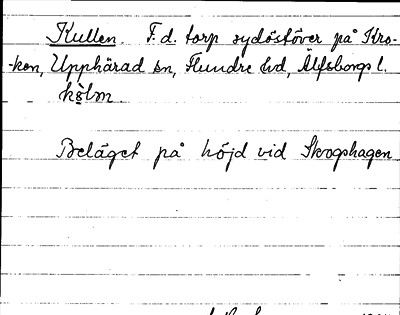 Kullen. F.d. torp sydöstöver på Kro-
-ken, Upphärad sn, Flundre hd, Älfsborgs l.
kòlm
Beläget på höjd vid Skogshagen